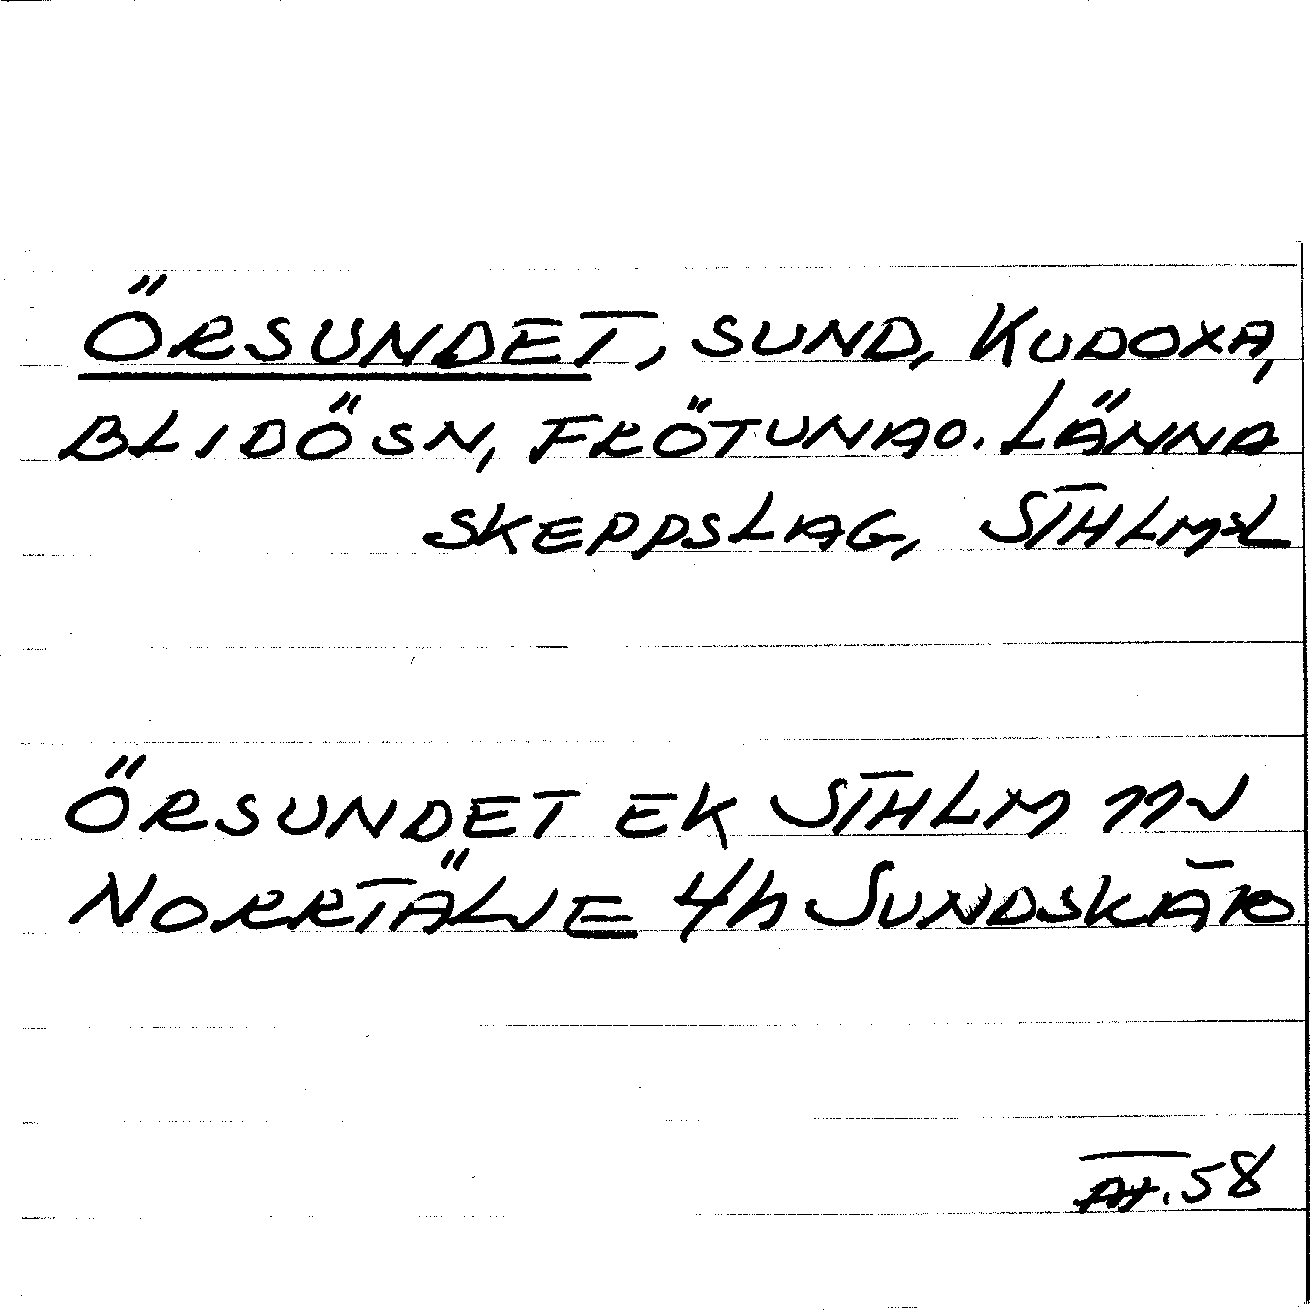 ÖRSUNDET, SUND, KUDOXA,
BLIDÖSN, FRÖTUNA O. LÄNNA
SKEPPSLAG, STHLMSL
ÖRSUNDET EK STHLM 11N
NORRTÄLJE 4h SUNDSKÄR
58